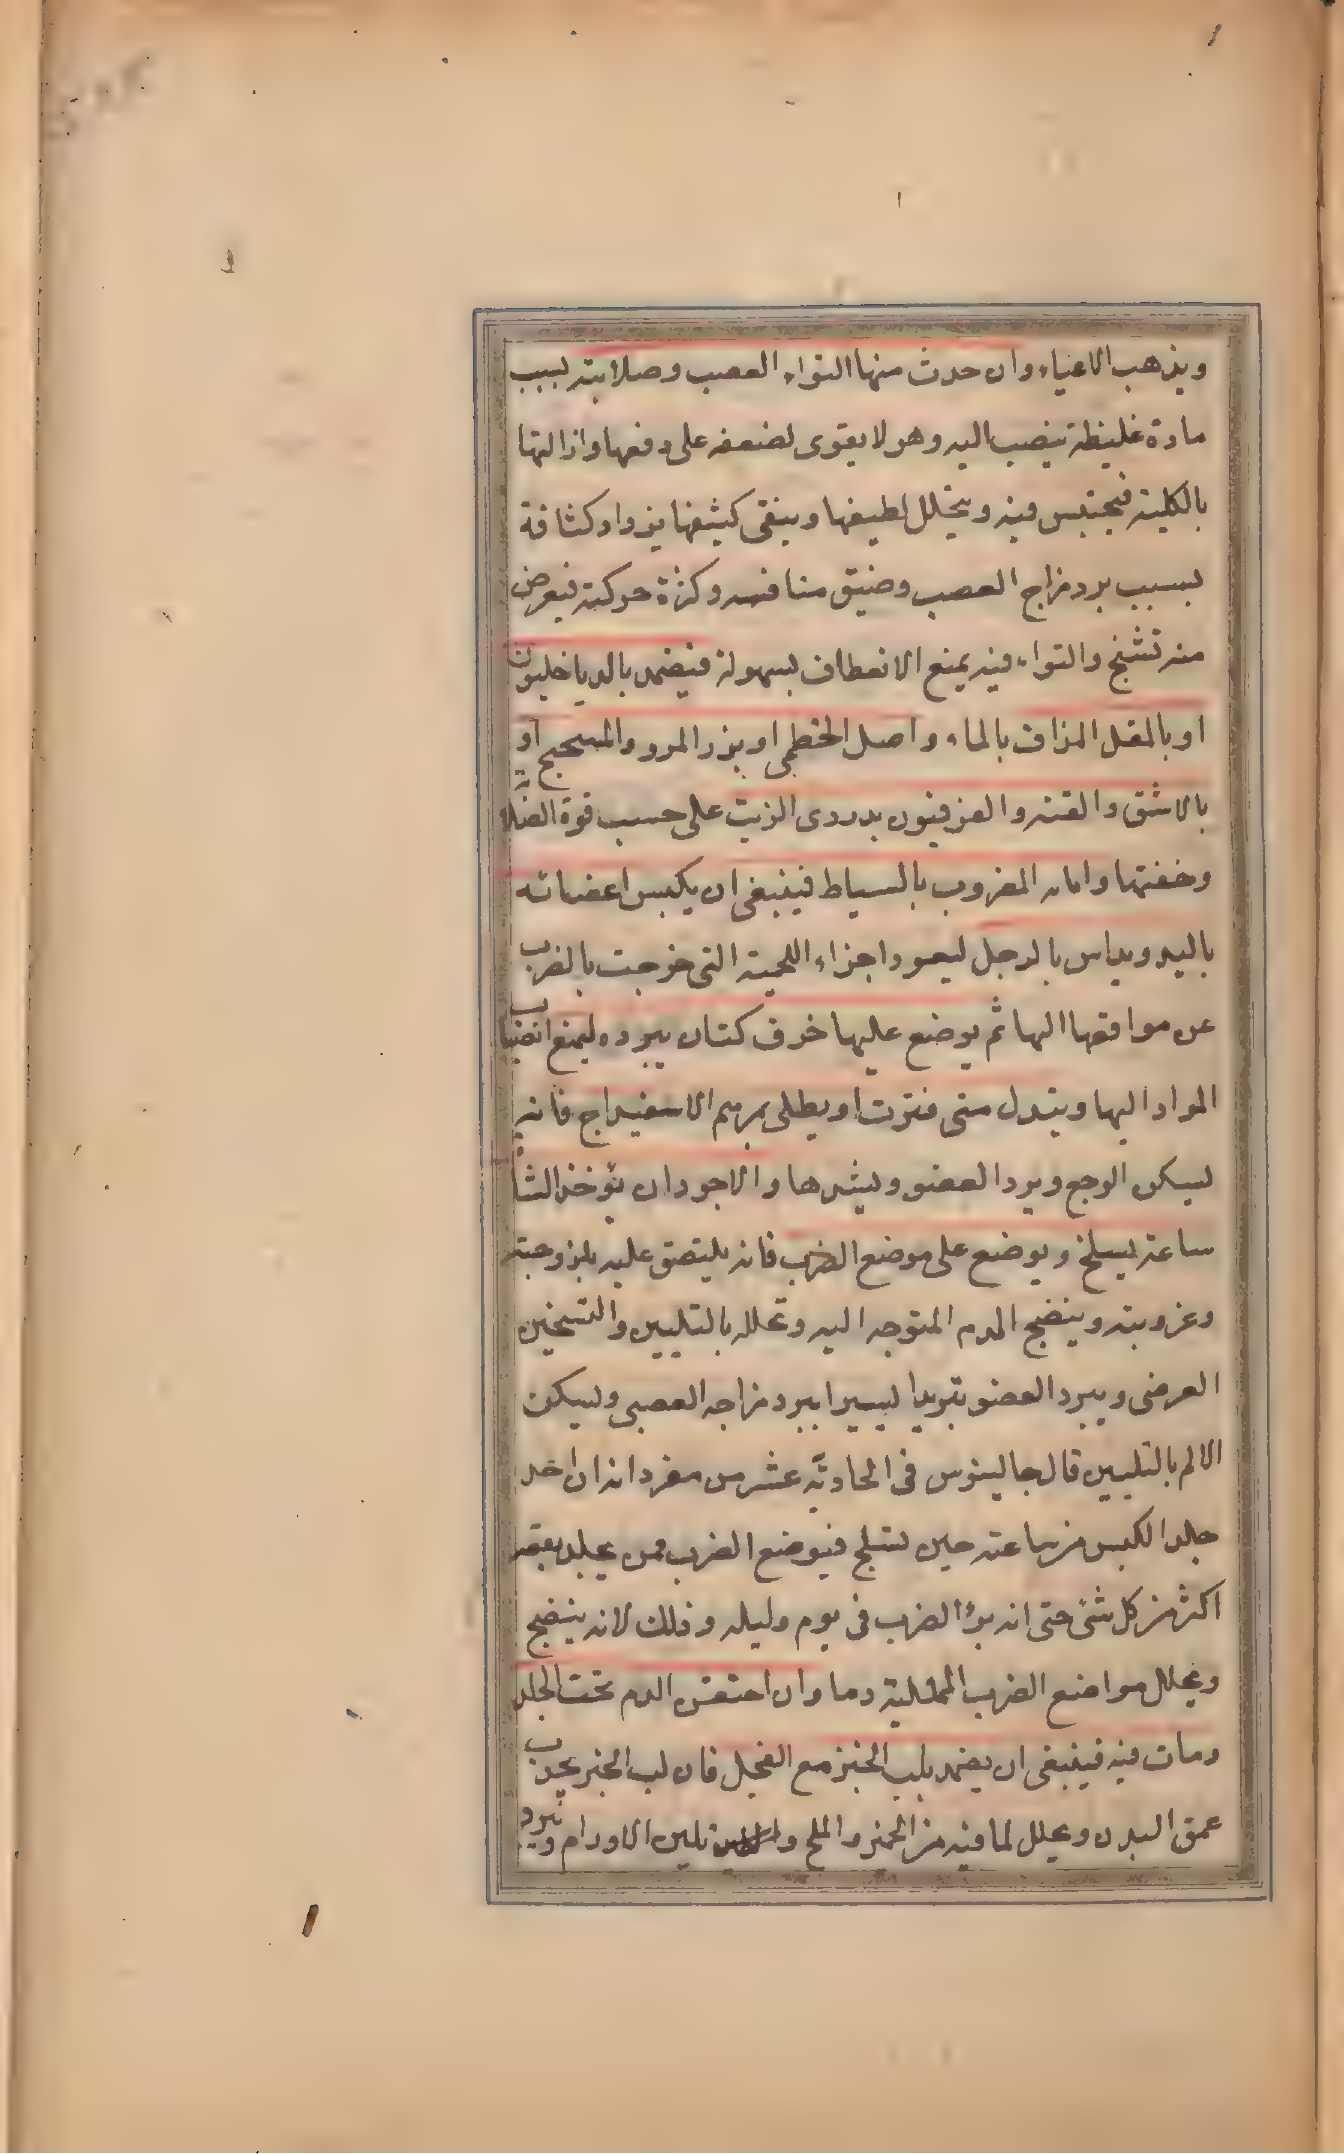 ويذهب الاعياء وان حدث منها التواء العصب وصلابته لسبب
مادة غليظة ينصب اليه وهو لا يقوى لضعفه على دفعها وازالتها
بالكلية فيحتبس فيه ويتحلل لطيفها ويبقى كثيفها يزداد كثافة
لسبب برد مزاج العصب وضيق منافسه وكزة حركته فيعرض
منه تشنج والتواء فيه يمنع الانعطاف لسهولة فيضمد بالدياخليون
او بالمقل المذاف بالماء واصل الخطمى او بزر المرو والميبختج او
بالاشق والقنه والفرفيون بدردى الزيت على حسب قوة الصلابة
وخفتها واما المضروب بالسياط فينبغى ان يكبس اعضائه
باليد ويداس بالرجل ليعود اجزاء اللحمية التى خرجت بالضرب
عن موافقها اليها ثم يوضع عليها خرق كتان يبرده ليمنع انصباب
المواد اليها ويتبدل متى فترت او يطلى بمرهم الاسفيداج فانه
ليسكن الوجع ويبرد العضو ويشدها والاجود ان يؤخذ الشاة
ساعة يسلخ ويوضع على موضع الضرب فانه يلتصق عليه بلزوجته
وغرويته وينضج الدم المتوجه اليه وتحلله بالتليين والتسخين
العرضى ويبرد العضو تبريدا يسيرا ببرد مزاجه العصبى وليسكن
الالم بالتليين قال جالينوس فى الحادية عشر من مفرداته ان اخذ
جلد الكبش من ساعته حين تسلخ فيوضع الضرب ممن يجلد نفعه
اكثر من كل شئ حتى انه يبرؤ الضرب فى يوم وليله وذلك لانه ينضج
ويحلل مواضع الضرب الممتلية دما وان احتقن الدم تحت الجلد
ومات فيه فينبغى ان يضمد بلب الخبز مع الفجل فان لب الخبز يجذب
عمق البدن ويحلل لما فيه من الخمير والملح تلين الاورام ويبرد